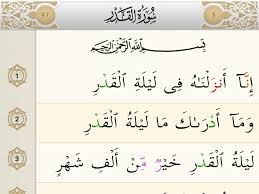 97 سُورَةُ القَدْرِ 5
بِسْمِ ٱللَّهِ ٱلرَّحْمَٰنِ ٱلرَّحِيمِ
1 إِنَّآ أَنزَلْنَٰهُ فِى لَيْلَةِ ٱلْقَدْرِ
2 وَمَآ أَدْرَىٰكَ مَا لَيْلَةُ ٱلْقَدْرِ
3 لَيْلَةُ ٱلْقَدْرِ خَيْرٌ مِّنْ أَلْفِ شَهْرٍ